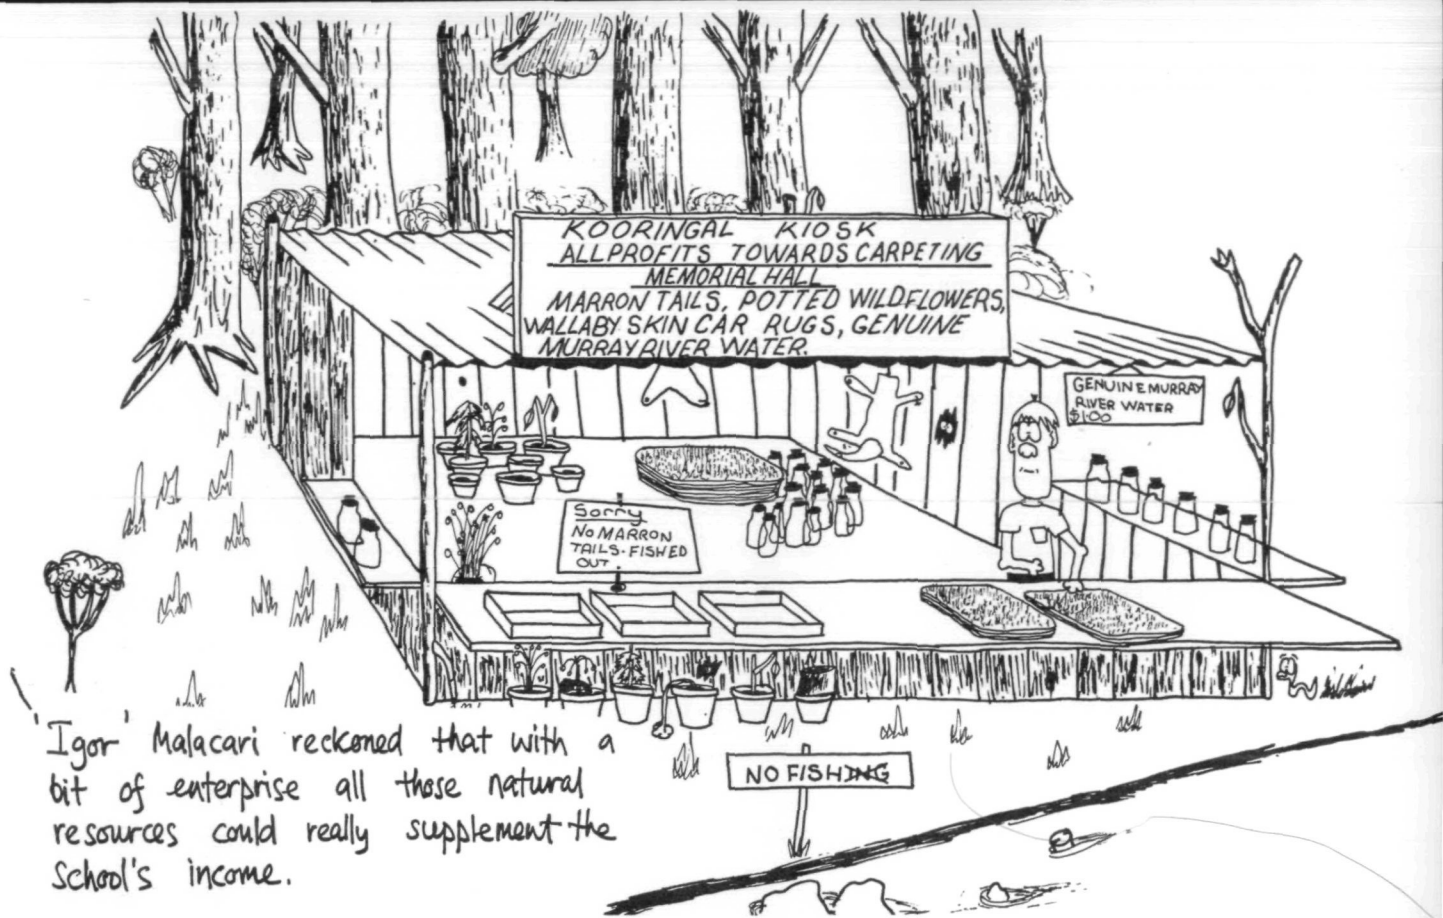 KOORINGAL KIOSK
ALL PROFITS TOWARDS CARPETING
MEMORIAL HALL
MARRON TAILS, POTTED WILDFLOWERS,
WALLABY SKIN CAR RUGS, GENUINE
MURRAY RIVER WATER.
GENUINE MURRAY
RIVER WATER
$1.00
Sorry
NO MARRON
TAILS. FISHED
OUT.
NO FISHING
'Igor' Malacari reckoned that with a
bit of enterprise all those natural
resources could really supplement the
School's income.